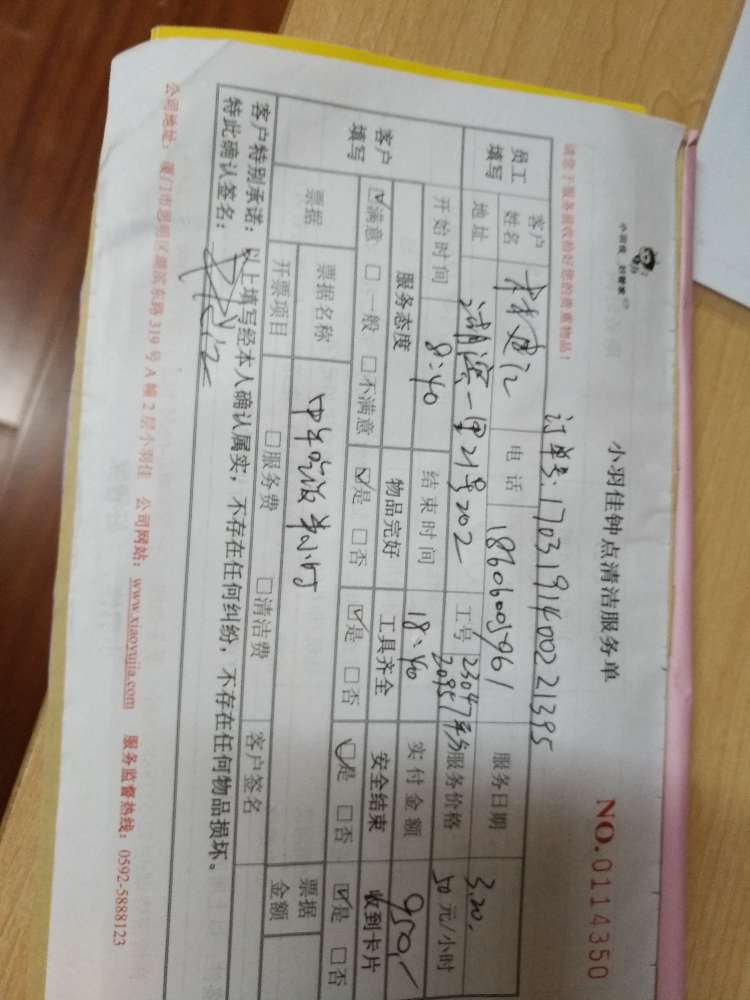 小羽佳 好管家
小羽佳钟点清洁服务单
NO.0114350
请您于服务前收检好您的贵重物品！
订单号:1703191400221395
员工填写 客户姓名 电话 18606005961 服务日期 3.20.
地址 湖滨一里21号202 工号 23047 20957 服务价格 50元/小时
客户填写 开始时间 8:40 结束时间 18:40 实付金额 950.-
服务态度 物品完好 工具齐全 安全结束 收到卡片
☑满意 □一般 □不满意 ☑是 □否 ☑是 □否 ☑是 □否 ☑是 □否
票据 票据名称 中午吃饭半小时 票据金额
开票项目 □服务费 □清洁费 客户签名
客户特别承诺：以上填写经本人确认属实，不存在任何纠纷，不存在任何物品损坏。
特此确认签名：
公司地址：厦门市思明区湖滨东路319号A幢2层小羽佳 公司网站：www.xiaoyujia.com 服务监督热线：0592-5888123